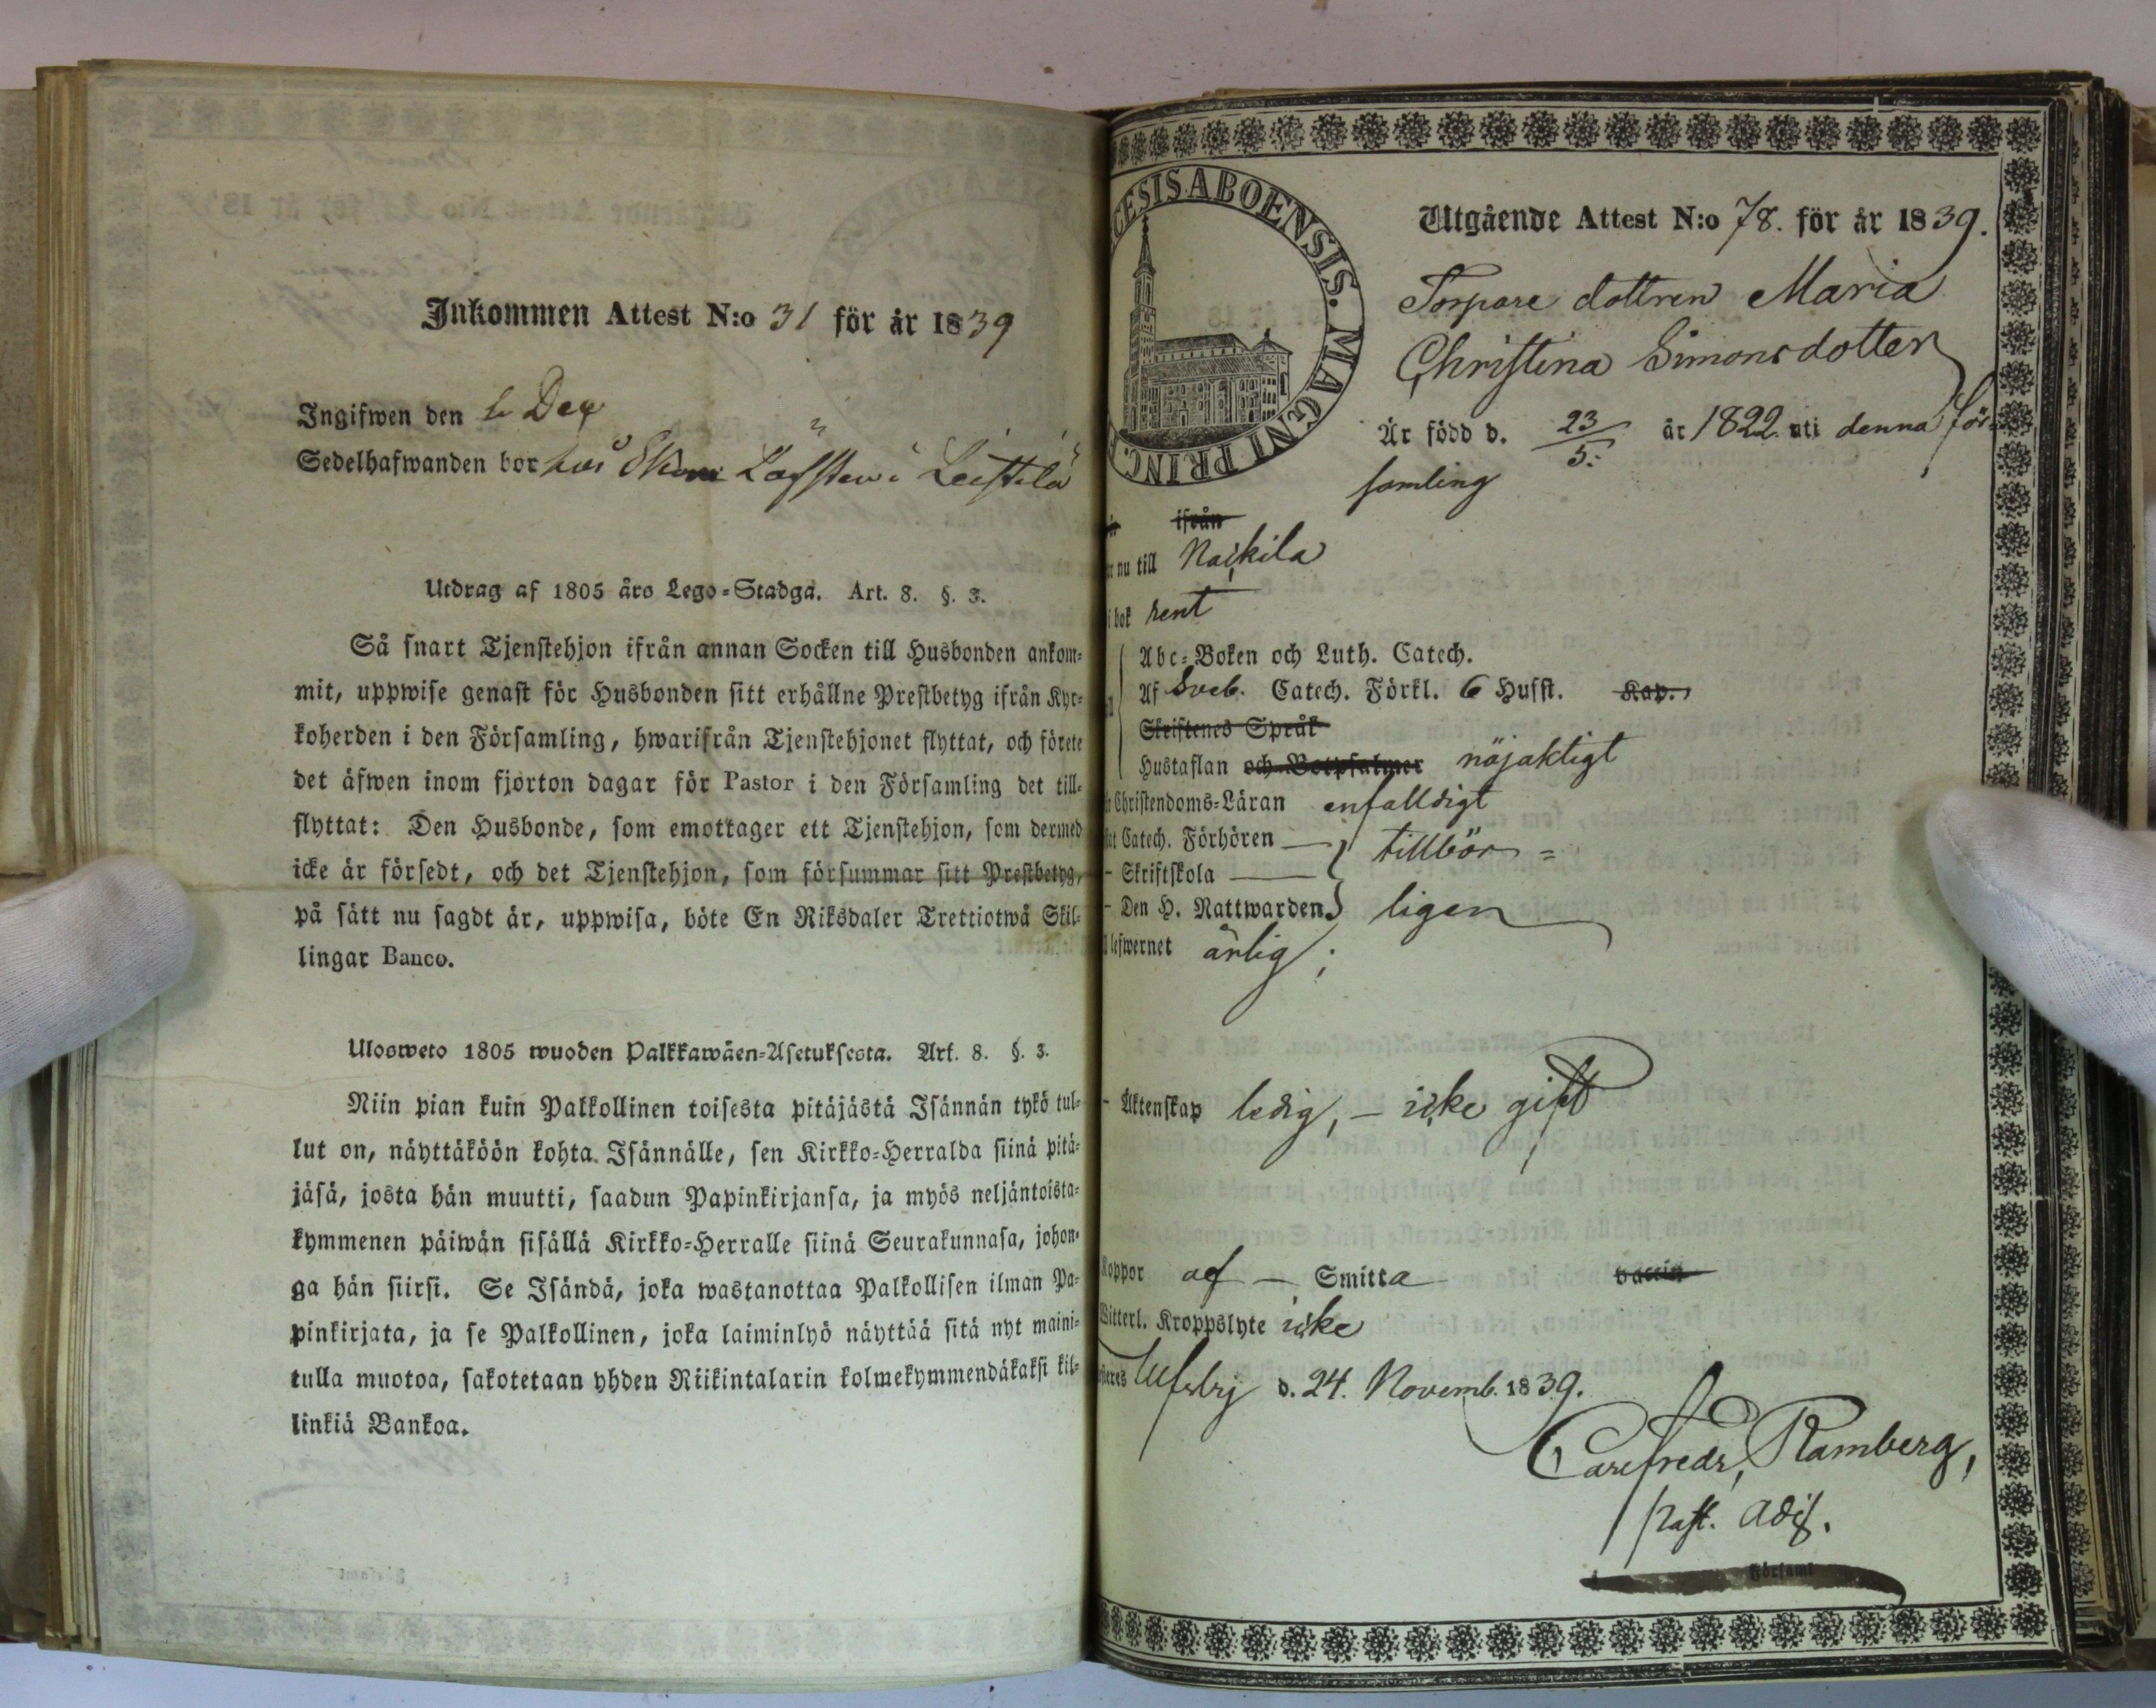 Inkommen Attest N:o 31 för år 1839
Ingifwen den Dec
Sedelhafwanden bor hos i Leistilä
Utdrag af 1805 års Lego-Stadga. Art. 8. §. 3.
Så snart Tjenstehjon ifrån annan Socken till Husbonden ankom-
mit, uppwise genast för Husbonden sitt erhållne Prestbetyg ifrån Kyr-
koherden i den Församling, hwarifrån Tjenstehjonet flyttat, och förete
det äfwen inom fjorton dagar för Pastor i den Församling det till-
flyttat: Den Husbonde, som emottager ett Tjenstehjon, som dermed
icke är försedt, och det Tjenstehjon, som försummar sitt Prestbetyg,
på sätt nu sagdt är, uppwisa, böte En Riksdaler Trettiotwå Skil-
lingar Banco.
Ulosweto 1805 wuoden Palkkawäen-Asetuksesta. Art. 8. §. 3.
Niin pian kuin Palkollinen toisesta pitäjästä Isännän tykö tul-
lut on, näyttäköön kohta Isännälle, sen Kirkko-Herralda siinä pitä-
jäsä, josta hän muutti, saadun Papinkirjansa, ja myös neljäntoista-
kymmenen päiwän sisällä Kirkko-Herralle siinä Seurakunnasa, johon-
ga hän siirsi. Se Isändä, joka wastanottaa Palkollisen ilman Pa-
pinkirjata, ja se Palkollinen, joka laiminlyö näyttää sitä nyt maini-
tulla muotoa, sakotetaan yhden Riikintalarin kolmekymmendäkaksi kil-
linkiä Bankoa.
CESIS ABOENSIS. MAGNI PRINC.
Utgående Attest N:o 78. för år 1839.
Torpare dottren Maria
Christina Simonsdotter
Är född d. 23/5. år 1822. uti denna för-
samling
ifrån
nu till Nackila
i bok rent
Abc-Boken och Luth. Catech.
Af Sveb. Catech. Förkl. 6 Hufst. Kap.
Skriftenes Språk
Hustaflan och Botpsalmer nöjaktigt
Christendoms-Läran enfalldigt
Catech. Förhören tillbör=
Skriftskola
Den H. Nattwarden ligen
lefwernet ärlig;
Äktenskap ledig, – icke gift
Koppor af – Smitta vaccin
Witterl. Kroppslyte icke
Ulfsby d. 24. Novemb. 1839.
Carl Fredr. Ramberg,
Past. Adj.
Församl